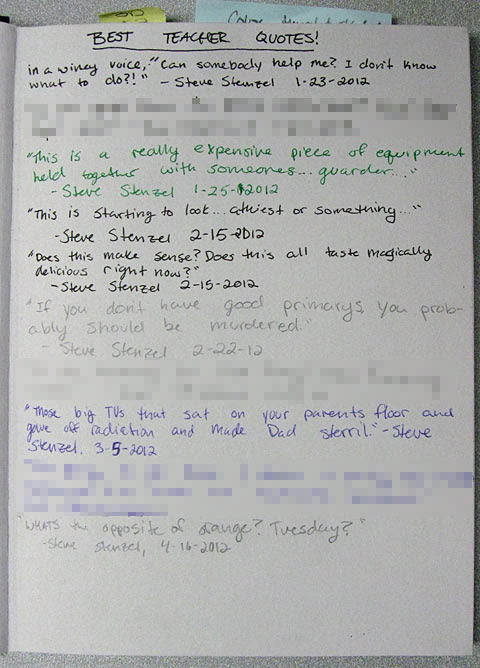 BEST TEACHER QUOTES!
in a winey voice, "Can somebody help me? I don't know
what to do?!" - Steve Stenzel 1-23-2012
"This is a really expensive piece of equipment
held together with someones... guarder..."
- Steve Stenzel 1-25-2012
"This is starting to look... athiest or something..."
-Steve Stenzel 2-15-2012
"Does this make sense? Does this all taste magically
delicious right now?"
-Steve Stenzel 2-15-2012
"If you don't have good primarys you prob-
ably should be murdered."
- Steve Stenzel 2-22-12
"Those big TVs that sat on your parents floor and
gave off radiation and made Dad sterril." - Steve
Stenzel. 3-5-2012
"WHATS the opposite of orange? Tuesday?"
-Steve Stenzel, 4-16-2012